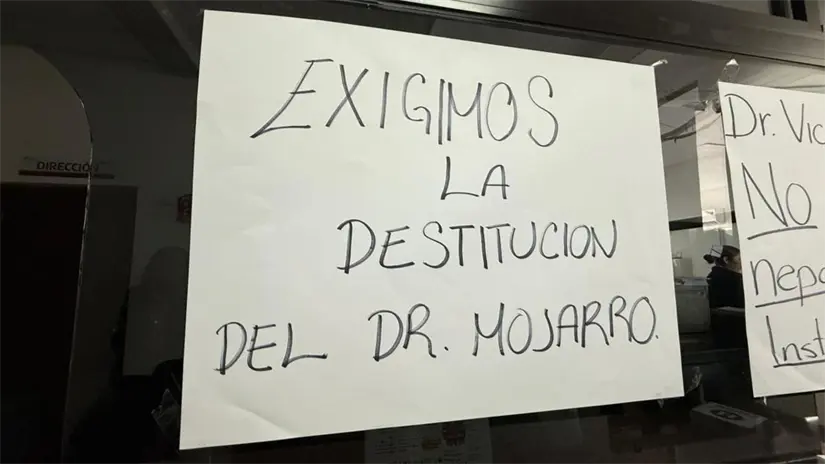 DIRECCIÓN
EXIGIMOS
LA
DESTITUCION
DEL DR. MOJARRO.
Dr. Vic
No
nepo
Inst